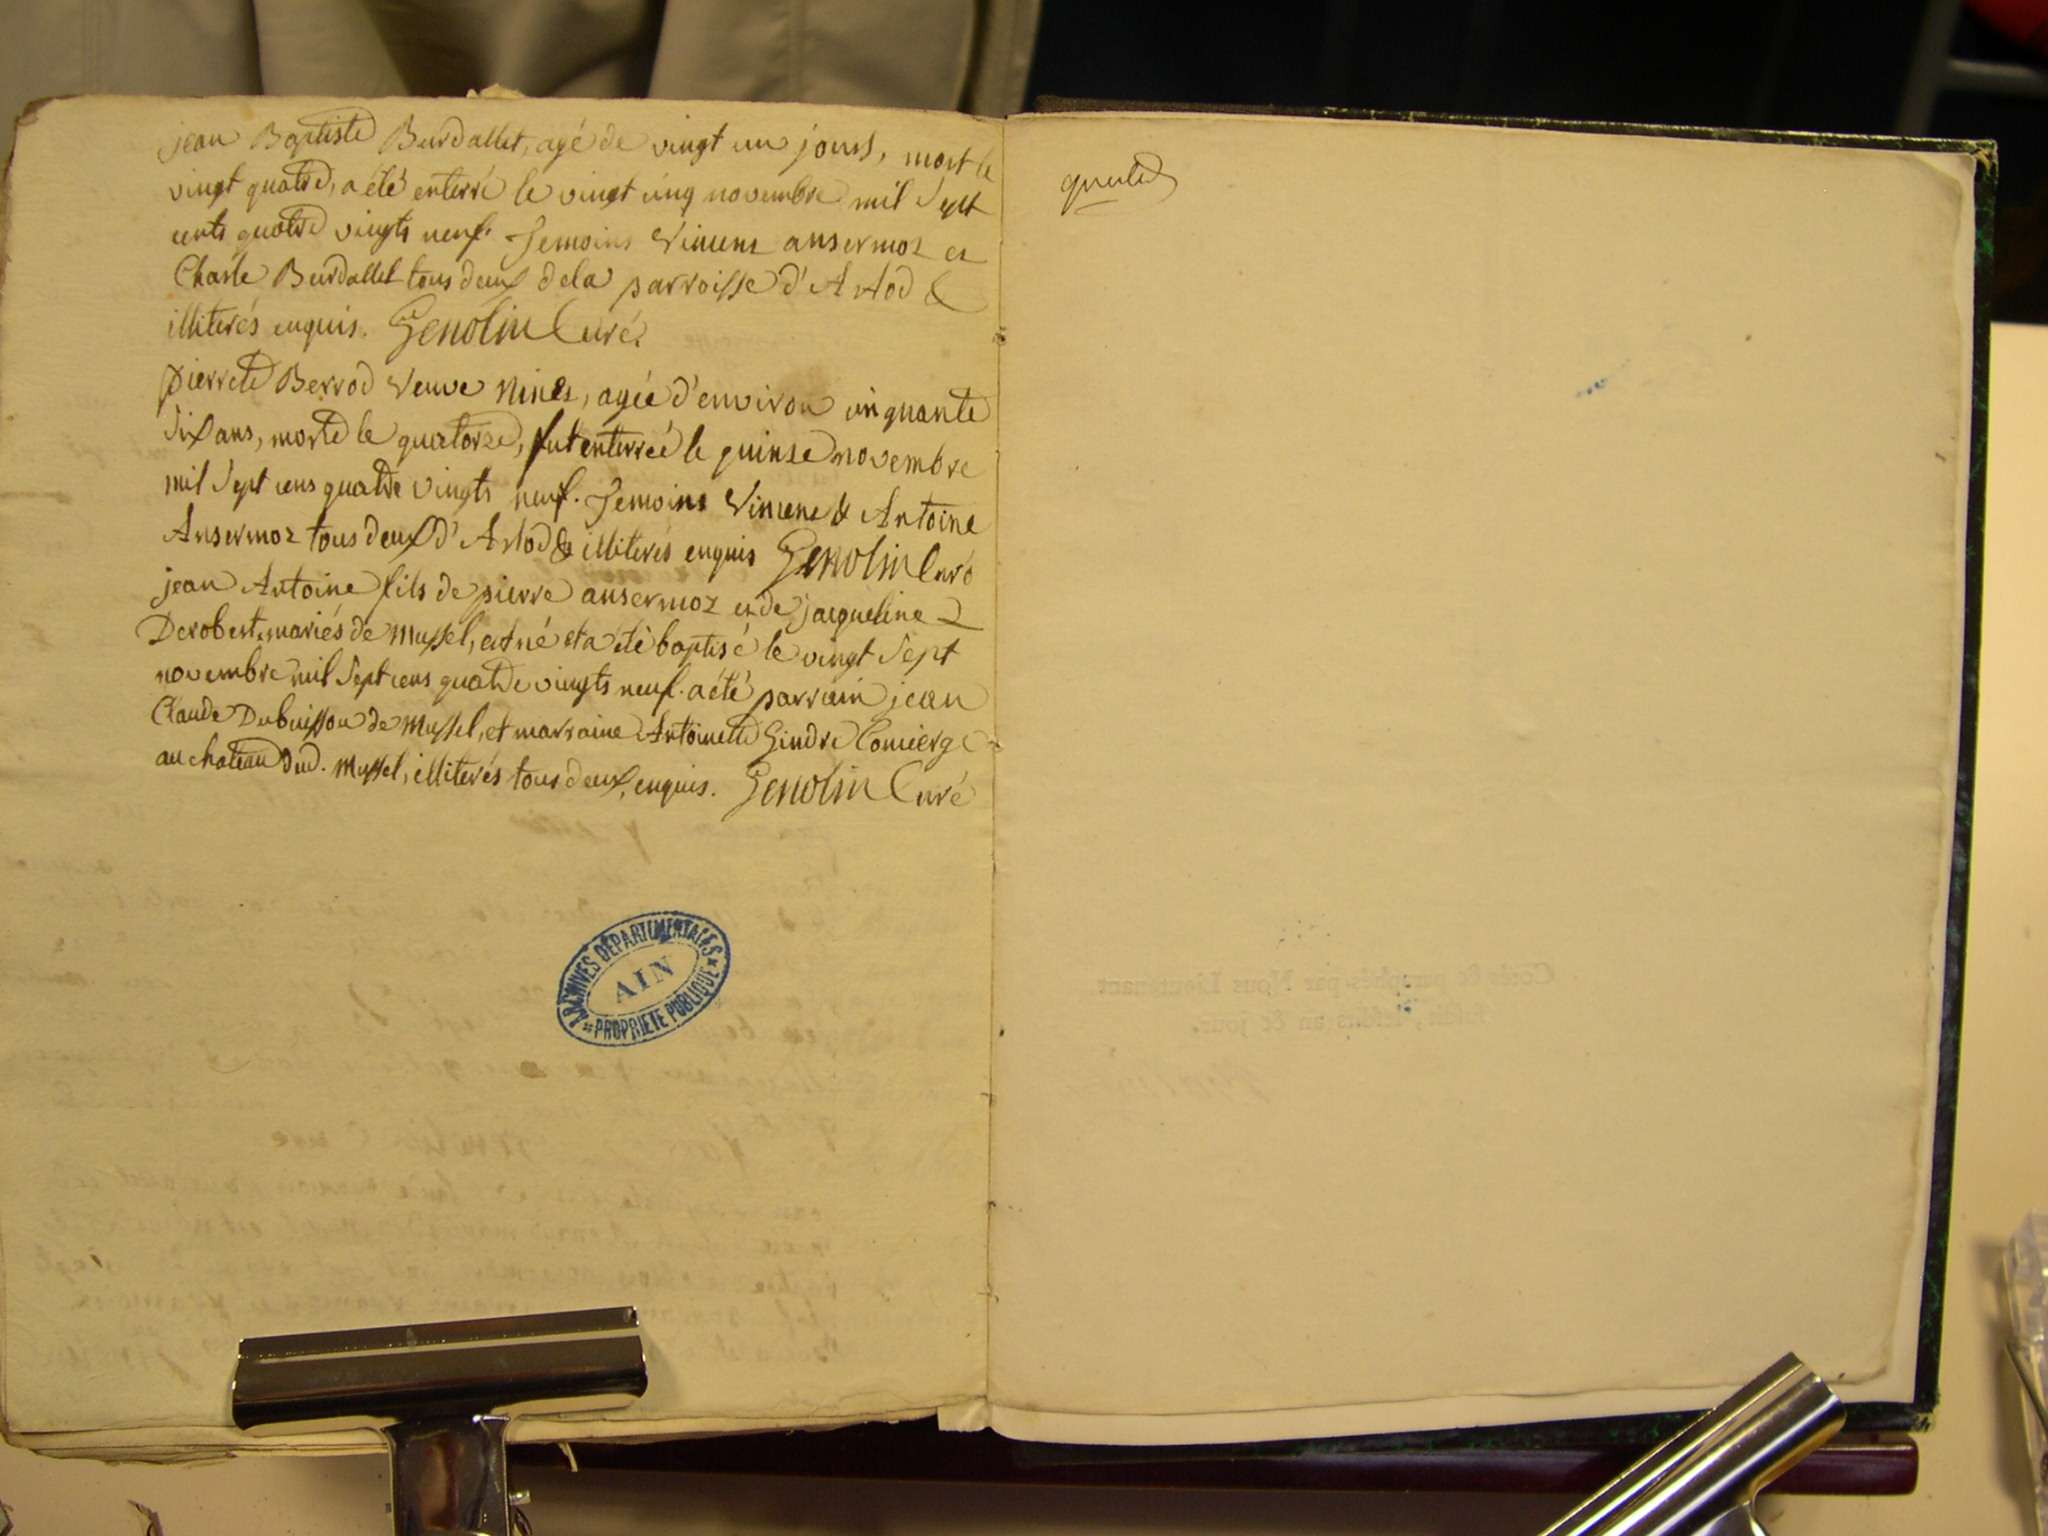 jean Baptiste Burdallet, agé de vingt un jours, mort le
vingt quatre, a été enterré le vingt cinq novembre mil sept
cents quatre vingts neuf. Temoins Vincent ansermoz et
Charle Burdallet tous deux dela parroisse d'Arlod &
illiterés enquis. Genolin Curé.
pierrete Berrod Veuve Ninet, agée d'environ cinquante
six ans, morte le quatorze, fut enterrée le quinse novembre
mil sept cens quatre vingts neuf. Temoins Vincent & Antoine
Ansermoz tous deux d'Arlod & illiterés enquis Genolin Curé
jean Antoine fils de pierre ansermoz et de jacqueline
Derobert mariés de Mussel, est né et a été baptisé le vingt sept
novembre mil sept cens quatre vingts neuf. a été parrain jean
Claude Dubuisson de Mussel, et marraine Antoinette Gindre Concierge
au chateau dud. Mussel, illiterés tous deux, enquis. Genolin Curé
ARCHIVES DÉPARTEMENTALES
AIN
PROPRIÉTÉ PUBLIQUE
Cotés & paraphés par Nous Lieutenant